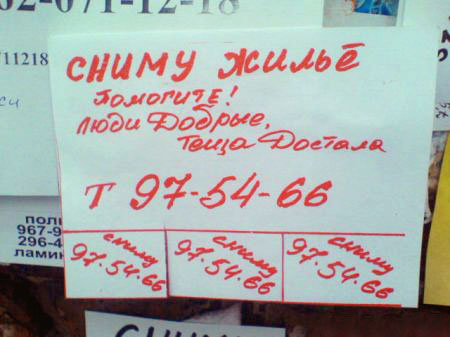 62-071-12-18
11218
СНИМУ ЖИЛЬЁ
ПОМОГИТЕ!
люди Добрые,
теща Достала
Т 97-54-66
сниму
97.54.66
сниму
97.54.66
сниму
97.54.66
поли
967-9
296-4
ламин
СНИМУ